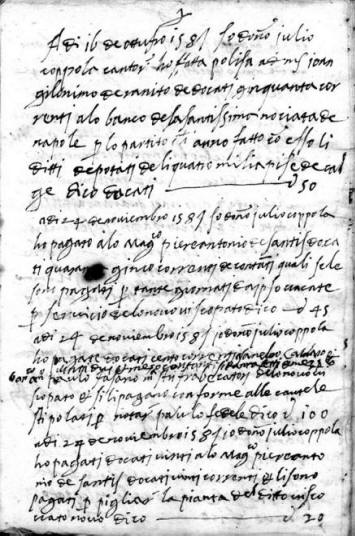 1
A di 16 de ottufro 1581 Jo donō julio
coppola cantor ho fatta polisa ad ms joan
geronimo de ranito de docati cinquanta cor
renti a lo banco de la santissima nociata de
napole p lo partito anno fatto cō esso li
ditti deputati de li quatro milia pise de cal
ge dico docati d 50
a di 24 de noviembro 1581 Jo donō julio coppola
ho pagato a lo mag.co pierantonio de santis doca
ti quaranta cinco correnti de contāti quali se le
sono pagati p tante giornate da ipso vacate
p servicio de lo novo viscopato dico d 45
a di 24 de noviembro 1581 jo donō julio coppola
ho pagate docati cento correnti
paulo fasano mstri frabicatori de lo novo vi
scopato et si li pagano conforme alle cautele
stipolati p notar paulo fedele dico d 100
a di 24 de noviembro 1581 jo donō julio coppola
ho pagati docati vinti a lo mag.co pierranto
nio de santis docati vinti correnti et li sono
pagati p pigliar la pianta del ditto visco
vato novo dico d 20